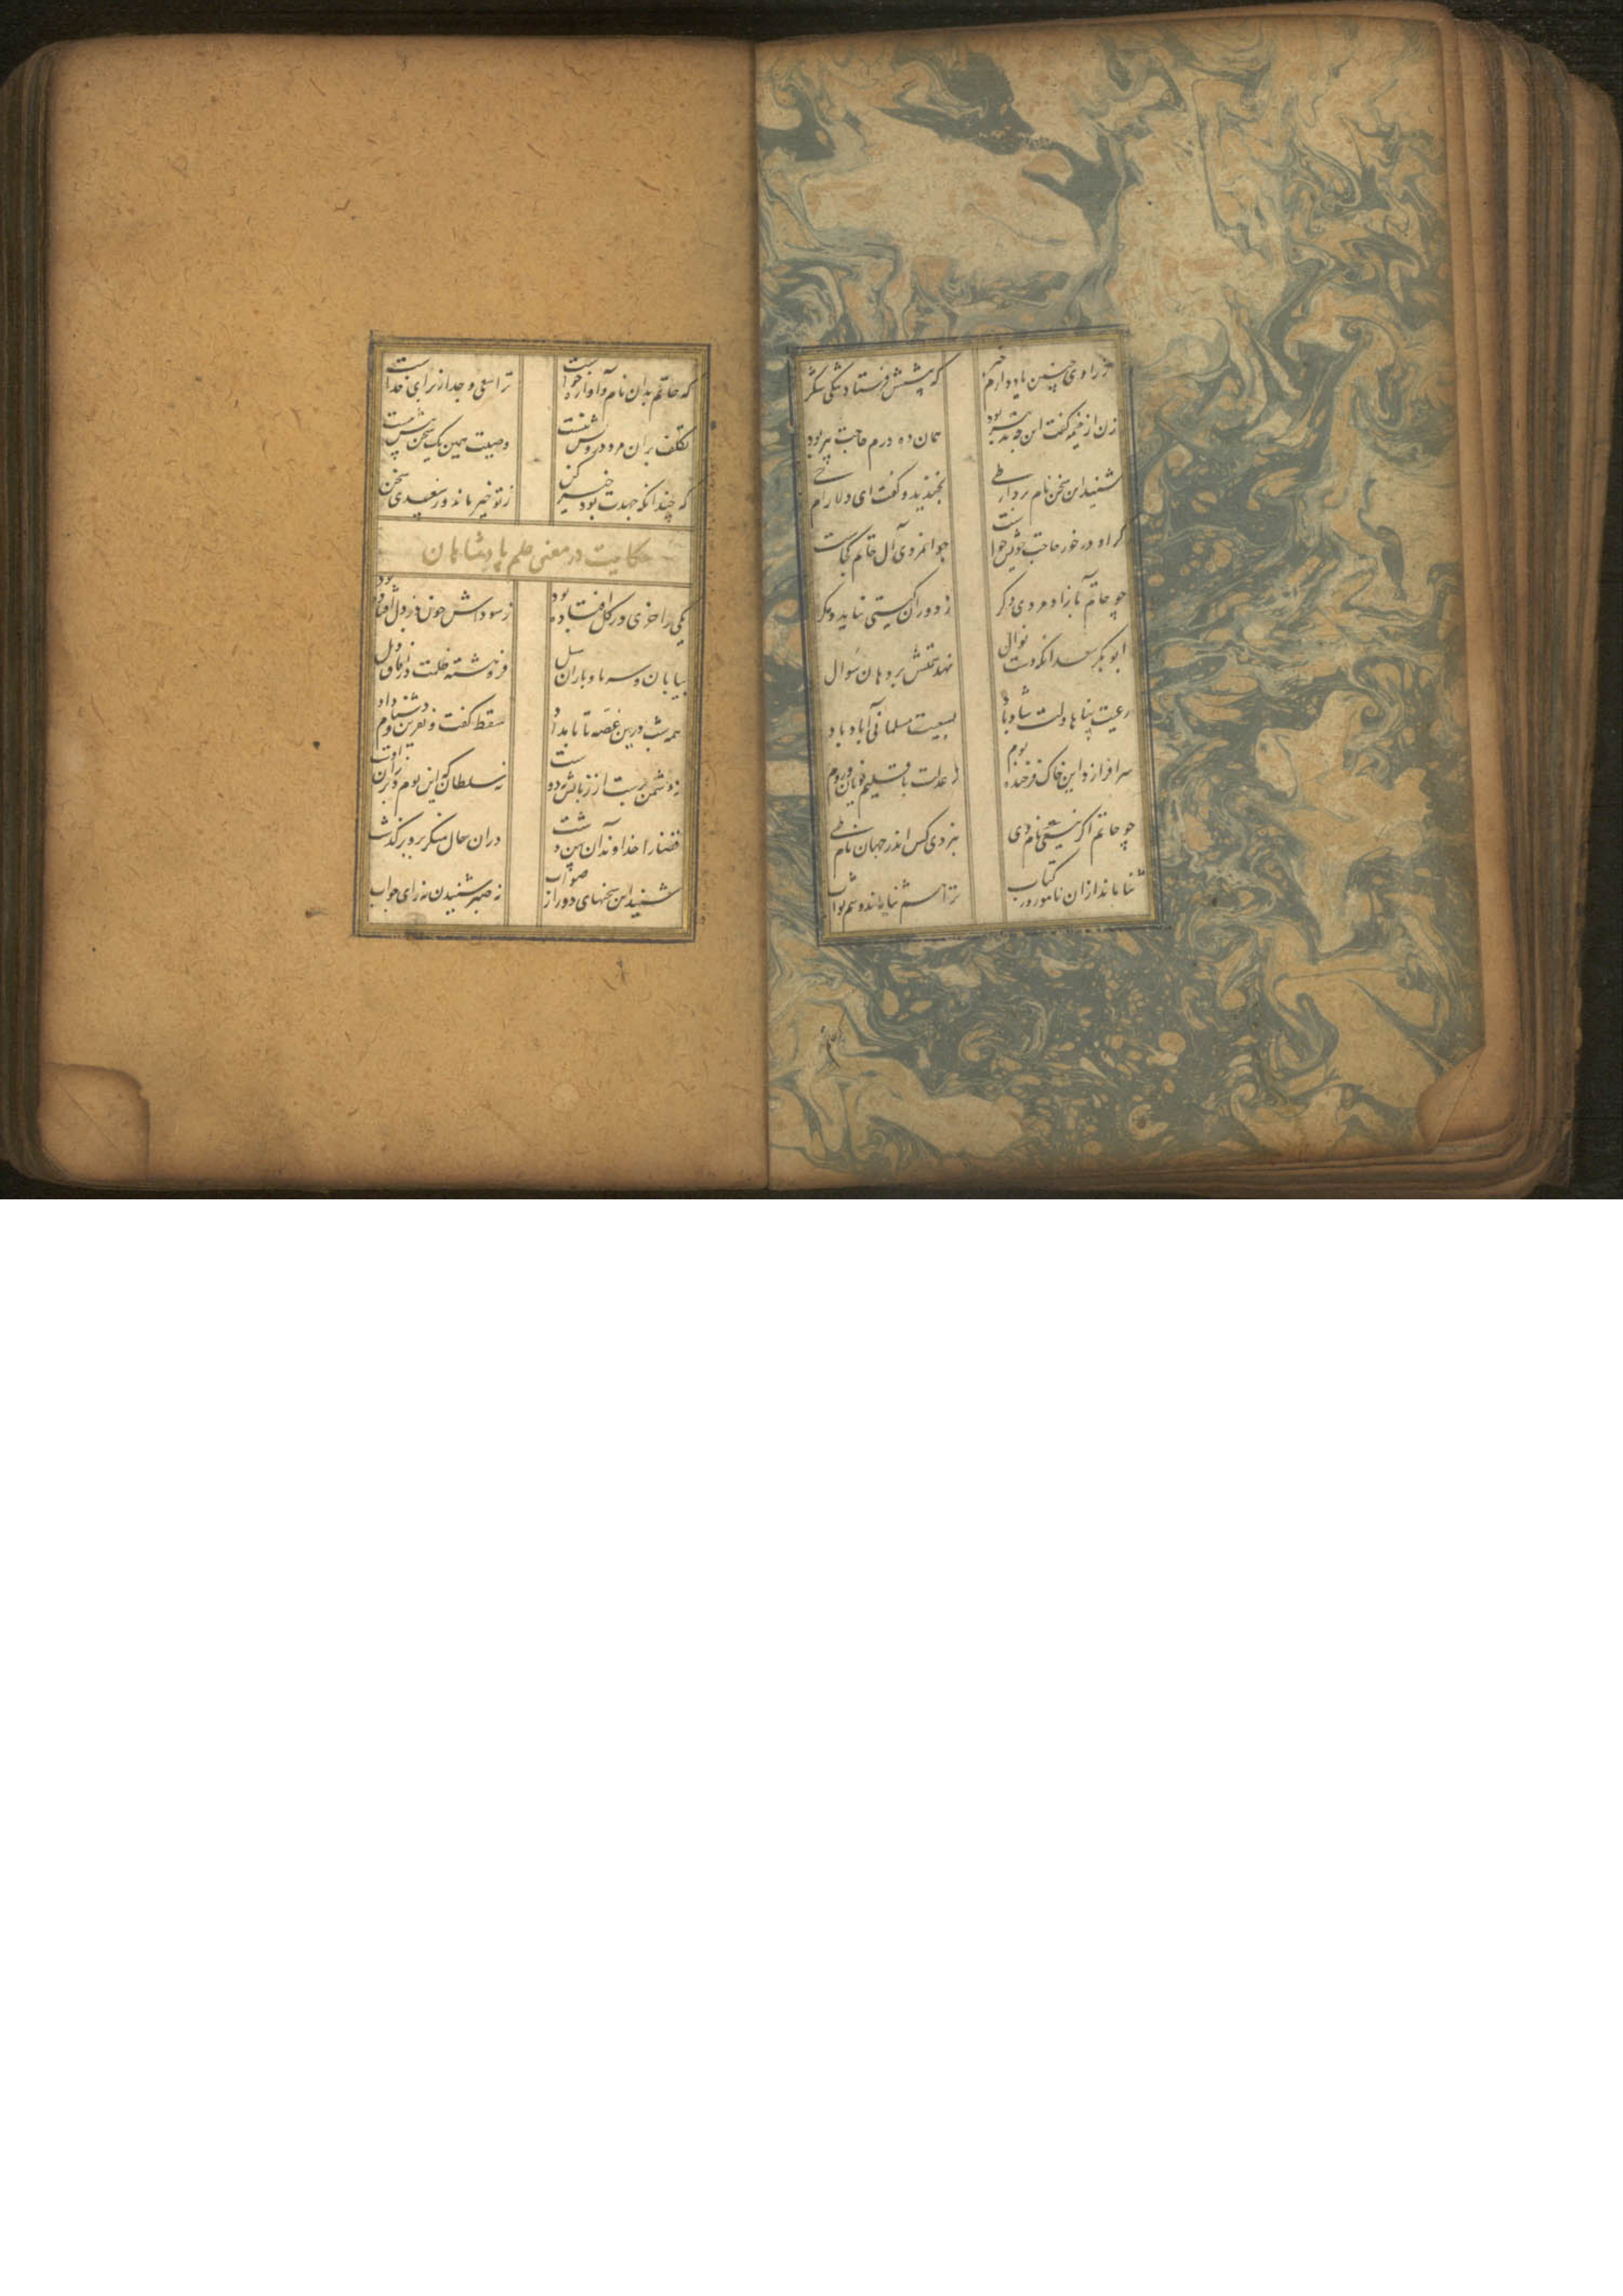 ز راوی چنین یاد دارم خبر که پیشش فرستاد تنگی شکر
زن از خیمه گفت این چه تدبیر بود همان ده درم حاجت پیر بود
شنید این سخن نام بردار طی بخندید و گفت ای دلارام حی
گر او در خور حاجت خویش خواست جوانمردی آل حاتم کجاست
چو حاتم بآزاد مردی دگر ز دوران گیتی نیاید دگر
ابو بکر سعد انکه دست نوال نهد همتش بر دهان سوال
رعیت پناها دلت شاد باد بسعیت مسلمانی آباد باد
سرافرازد این خاک فرخنده بوم ز عدلت بر اقلیم یونان و روم
چو حاتم اگر نیستی نام وی نبردی کس اندر جهان نام طی
ثنا ماند ازان نامور در کتاب ترا هم ثنا ماند و هم ثواب
که حاتم بدان نام و آوازه خواست ترا سعی و جهد از برای خداست
تکلف بران مرد درویش نیست وصیت همین یک سخن بیش نیست
که چندانکه جهدت بود خیر کن ز تو خیر ماند و ز سعدی سخن
حکایت در معنی حلم پادشاهان
یکی را خری در گل افتاده بود ز سوداش خون در دل افتاده بود
بیابان و سرما و باران و سیل فروهشته ظلمت در آفاق ذیل
همه شب درین غصه تا بامداد سقط گفت و نفرین و دشنام داد
نه دشمن برست از زبانش نه دوست نه سلطان که این بوم و بر زان اوست
قضا را خداوند آن پهن دشت دران حال منکر برو برگذشت
شنید این سخنهای دور از صواب نه صبر شنیدن نه رای جواب